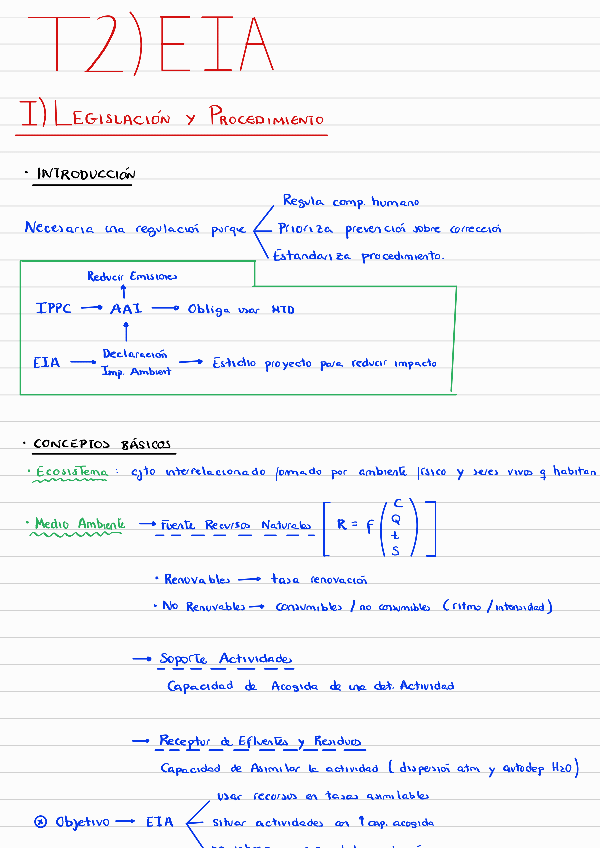 T2) EIA
I) LEGISLACIÓN Y PROCEDIMIENTO
· INTRODUCCIÓN
Regula comp. humano
Necesaria una regulación porque
Prioriza prevención sobre corrección
Estandariza procedimiento.
Reducir Emisiones
IPPC → AAI → Obliga usar MTD
Declaración
EIA → → Estudio proyecto para reducir impacto
Imp. Ambient
· CONCEPTOS BÁSICOS
· Ecosistema : cjto interrelacionado formado por ambiente físico y seres vivos q habitan
· Medio Ambiente → Fuente Recursos Naturales [ R = f ( C
Q
t
S ) ]
· Renovables → tasa renovación
· No Renovables → consumibles / no consumibles (ritmo / intensidad)
→ Soporte Actividades
Capacidad de Acogida de una det. Actividad
→ Receptor de Efluentes y Residuos
Capacidad de Asimilar la actividad ( dispersión atm y autodep H2O)
usar recursos en tasas asimilables
⊗ Objetivo → EIA
situar actividades en ↑ cap. acogida